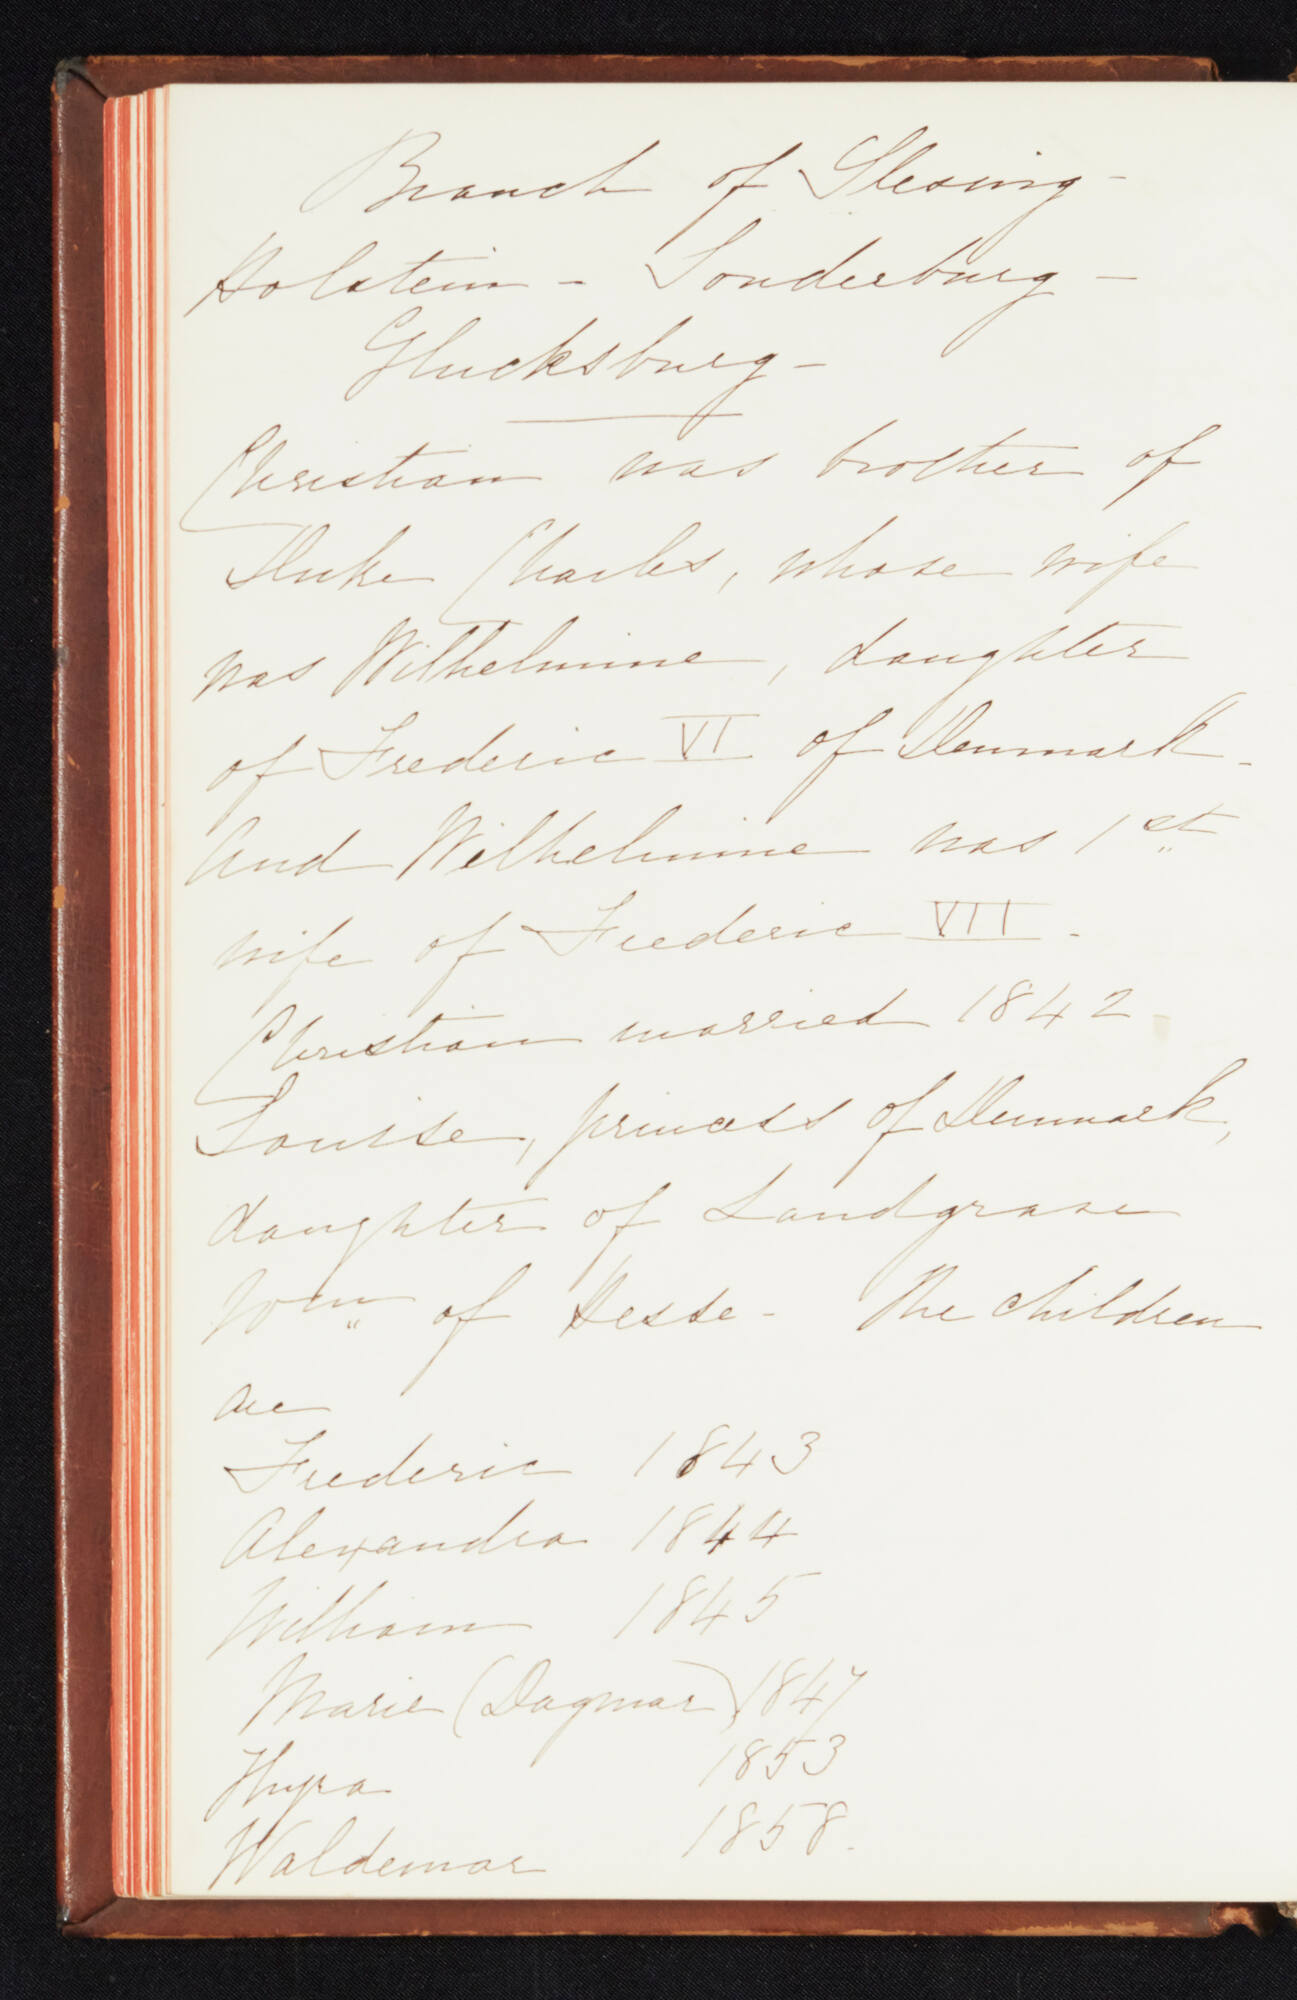 Branch of Slesvig -
Holstein - Sonderburg -
Glucksburg -
Christian was brother of
Duke Charles, whose wife
was Wilhelmine, daughter
of Frederic VI of Denmark -
And Wilhelmine was 1st
wife of Frederic VII -
Christian married 1842
Louise, princess of Denmark,
daughter of Landgrave
Wm of Hesse - The children
are
Frederic 1843
Alexandra 1844
William 1845
Marie (Dagmar) 1847
Thyra 1853
Waldemar 1858.